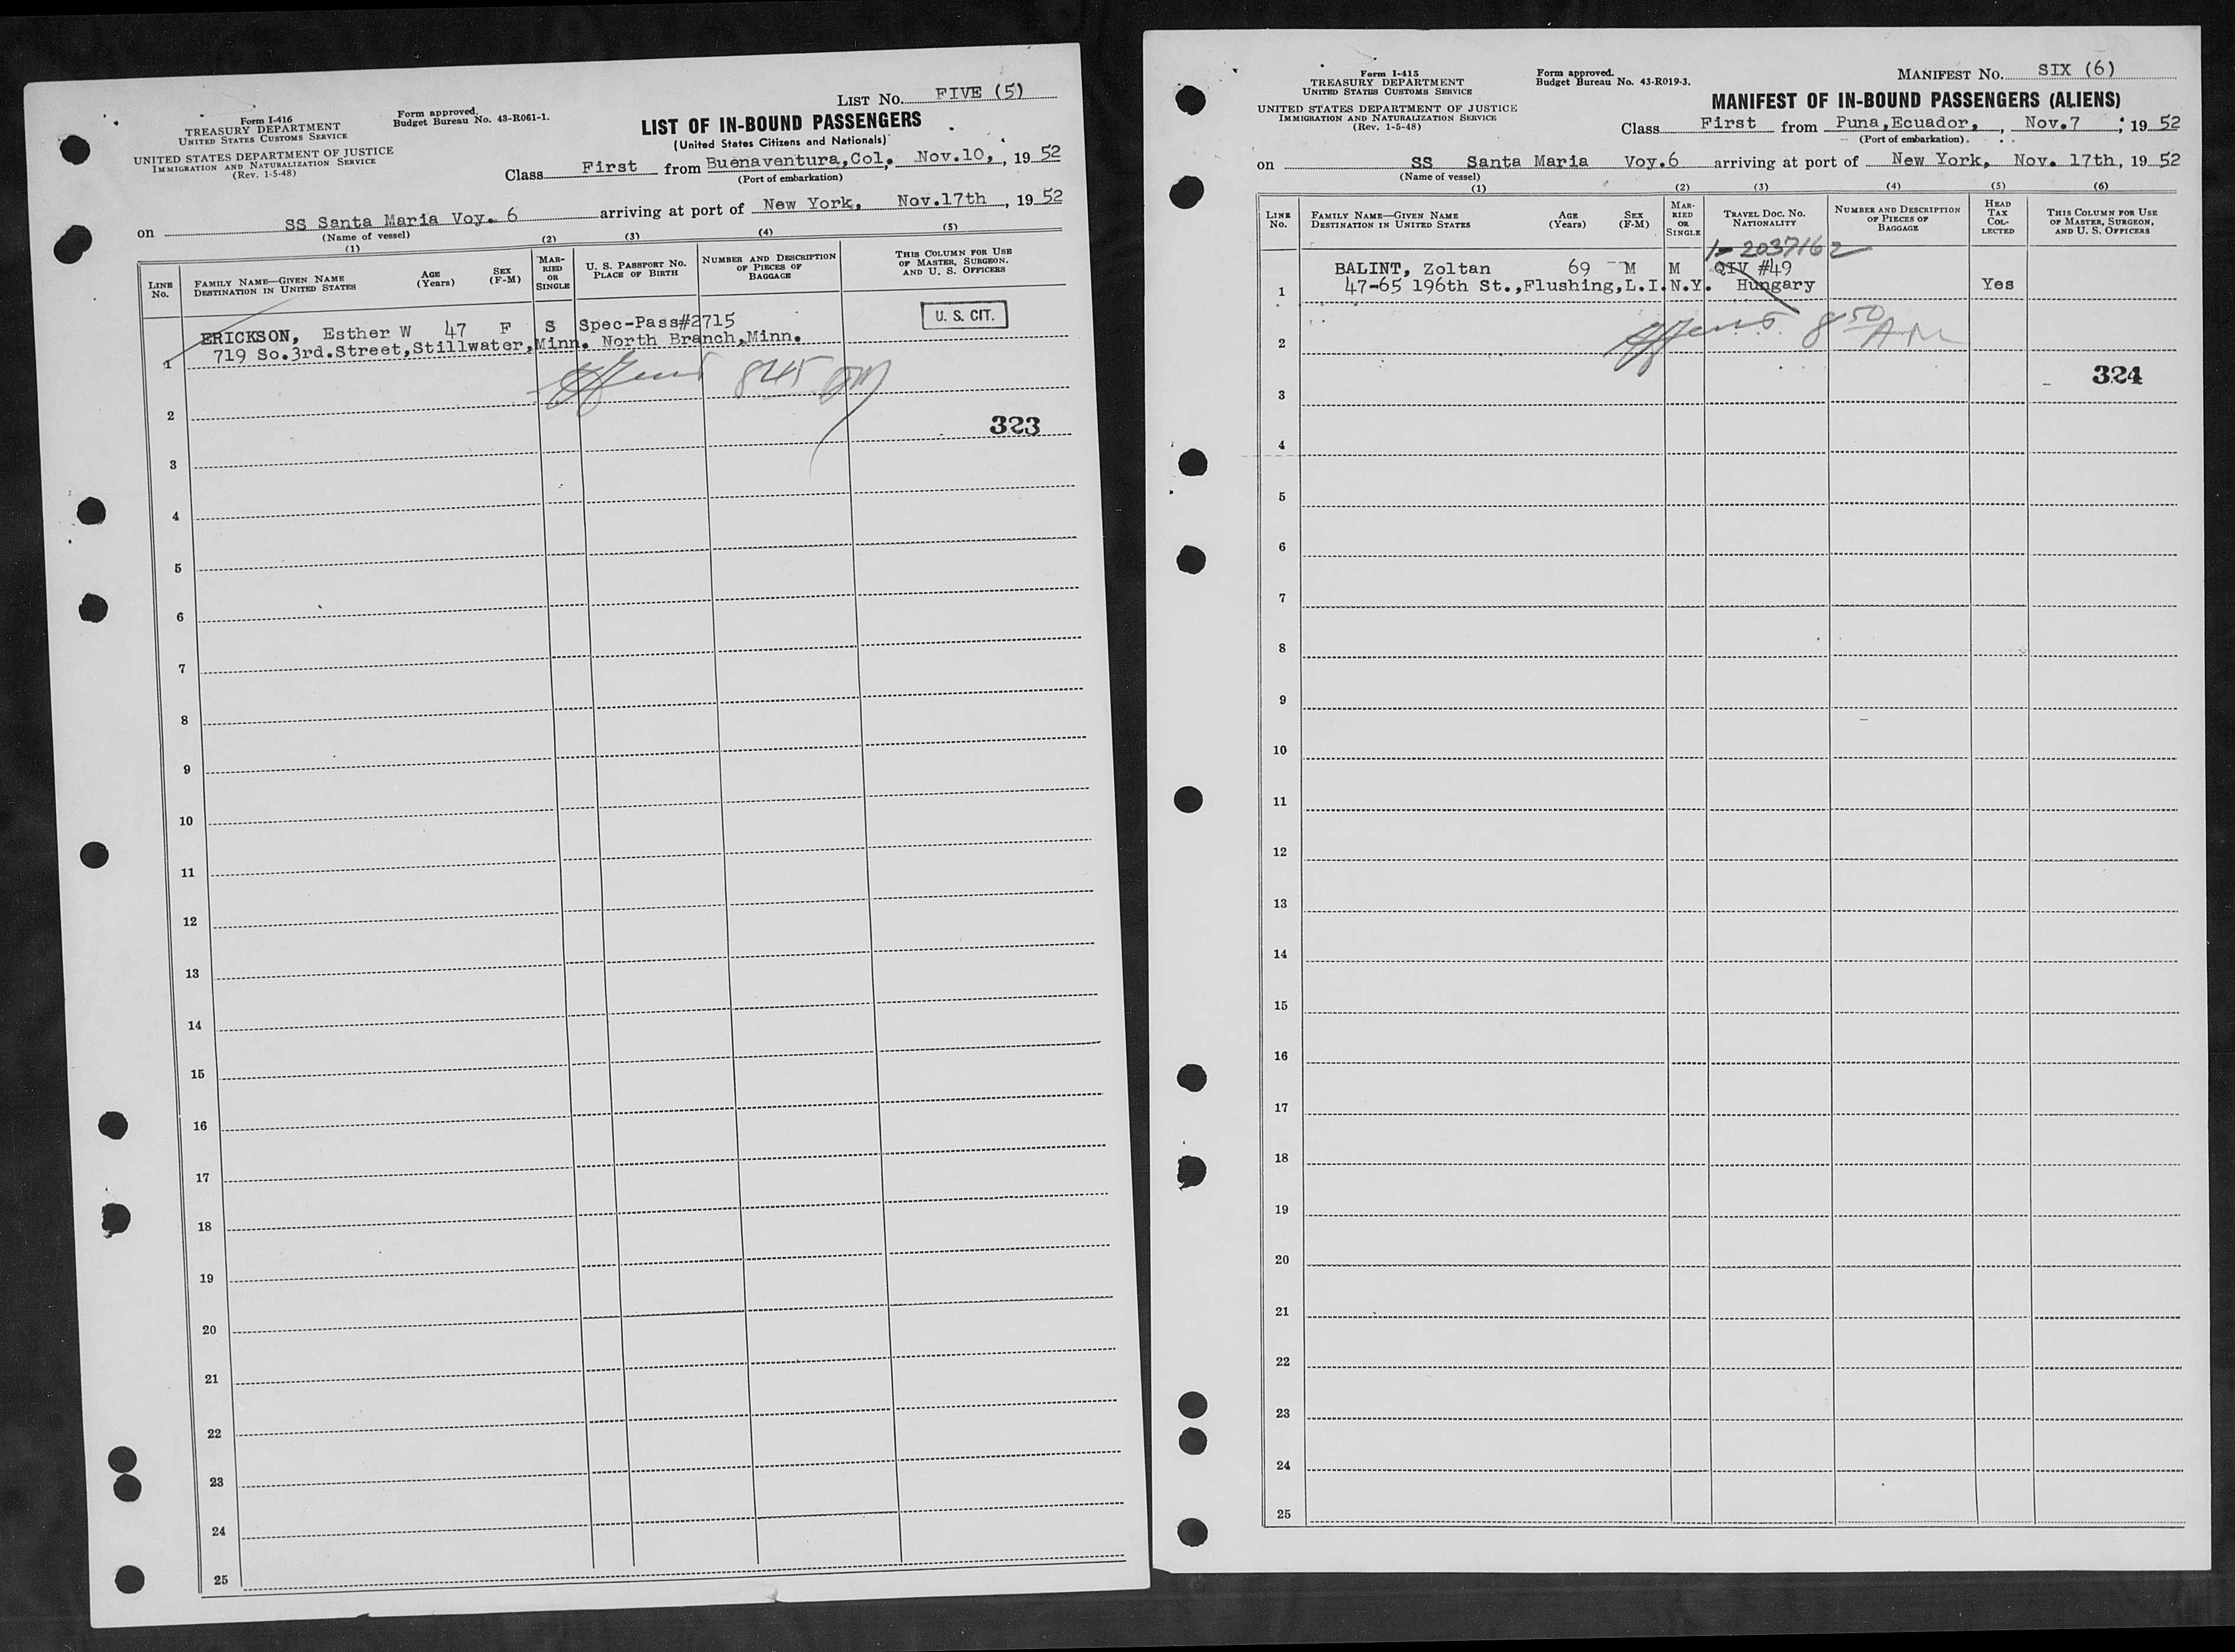 LIST NO. FIVE (5)
Form I-416
TREASURY DEPARTMENT
UNITED STATES CUSTOMS SERVICE
UNITED STATES DEPARTMENT OF JUSTICE
IMMIGRATION AND NATURALIZATION SERVICE
(Rev. 1-5-48)
Form approved.
Budget Bureau No. 43-R061-1.
LIST OF IN-BOUND PASSENGERS
(United States Citizens and Nationals)
Class First from Buenaventura,Col. Nov.10, , 19 52
(Port of embarkation)
on SS Santa Maria Voy. 6 arriving at port of New York, Nov.17th , 19 52
(Name of vessel)
(1) (2) (3) (4) (5)
LINE No. FAMILY NAME—GIVEN NAME DESTINATION IN UNITED STATES AGE (Years) SEX (F-M) MARRIED OR SINGLE U. S. PASSPORT NO. PLACE OF BIRTH NUMBER AND DESCRIPTION OF PIECES OF BAGGAGE THIS COLUMN FOR USE OF MASTER, SURGEON, AND U. S. OFFICERS
U. S. CIT.
ERICKSON, Esther W 47 F S Spec-Pass#2715
1 719 So.3rd.Street,Stillwater,Minn. North Branch,Minn.
845 AM
2
323
3
4
5
6
7
8
9
10
11
12
13
14
15
16
17
18
19
20
21
22
23
24
25
Form I-415
TREASURY DEPARTMENT
UNITED STATES CUSTOMS SERVICE
UNITED STATES DEPARTMENT OF JUSTICE
IMMIGRATION AND NATURALIZATION SERVICE
(Rev. 1-5-48)
Form approved.
Budget Bureau No. 43-R019-3.
MANIFEST NO. SIX (6)
MANIFEST OF IN-BOUND PASSENGERS (ALIENS)
Class First from Puna,Ecuador, , Nov.7 , 19 52
(Port of embarkation)
on SS Santa Maria Voy.6 arriving at port of New York, Nov. 17th , 19 52
(Name of vessel)
(1) (2) (3) (4) (5) (6)
LINE No. FAMILY NAME—GIVEN NAME DESTINATION IN UNITED STATES AGE (Years) SEX (F-M) MARRIED OR SINGLE TRAVEL DOC. NO. NATIONALITY NUMBER AND DESCRIPTION OF PIECES OF BAGGAGE HEAD TAX COLLECTED THIS COLUMN FOR USE OF MASTER, SURGEON, AND U. S. OFFICERS
1-2037162
BALINT, Zoltan 69 M M QIV #49
1 47-65 196th St.,Flushing,L.I.N.Y. Hungary Yes
850 AM
2
324
3
4
5
6
7
8
9
10
11
12
13
14
15
16
17
18
19
20
21
22
23
24
25